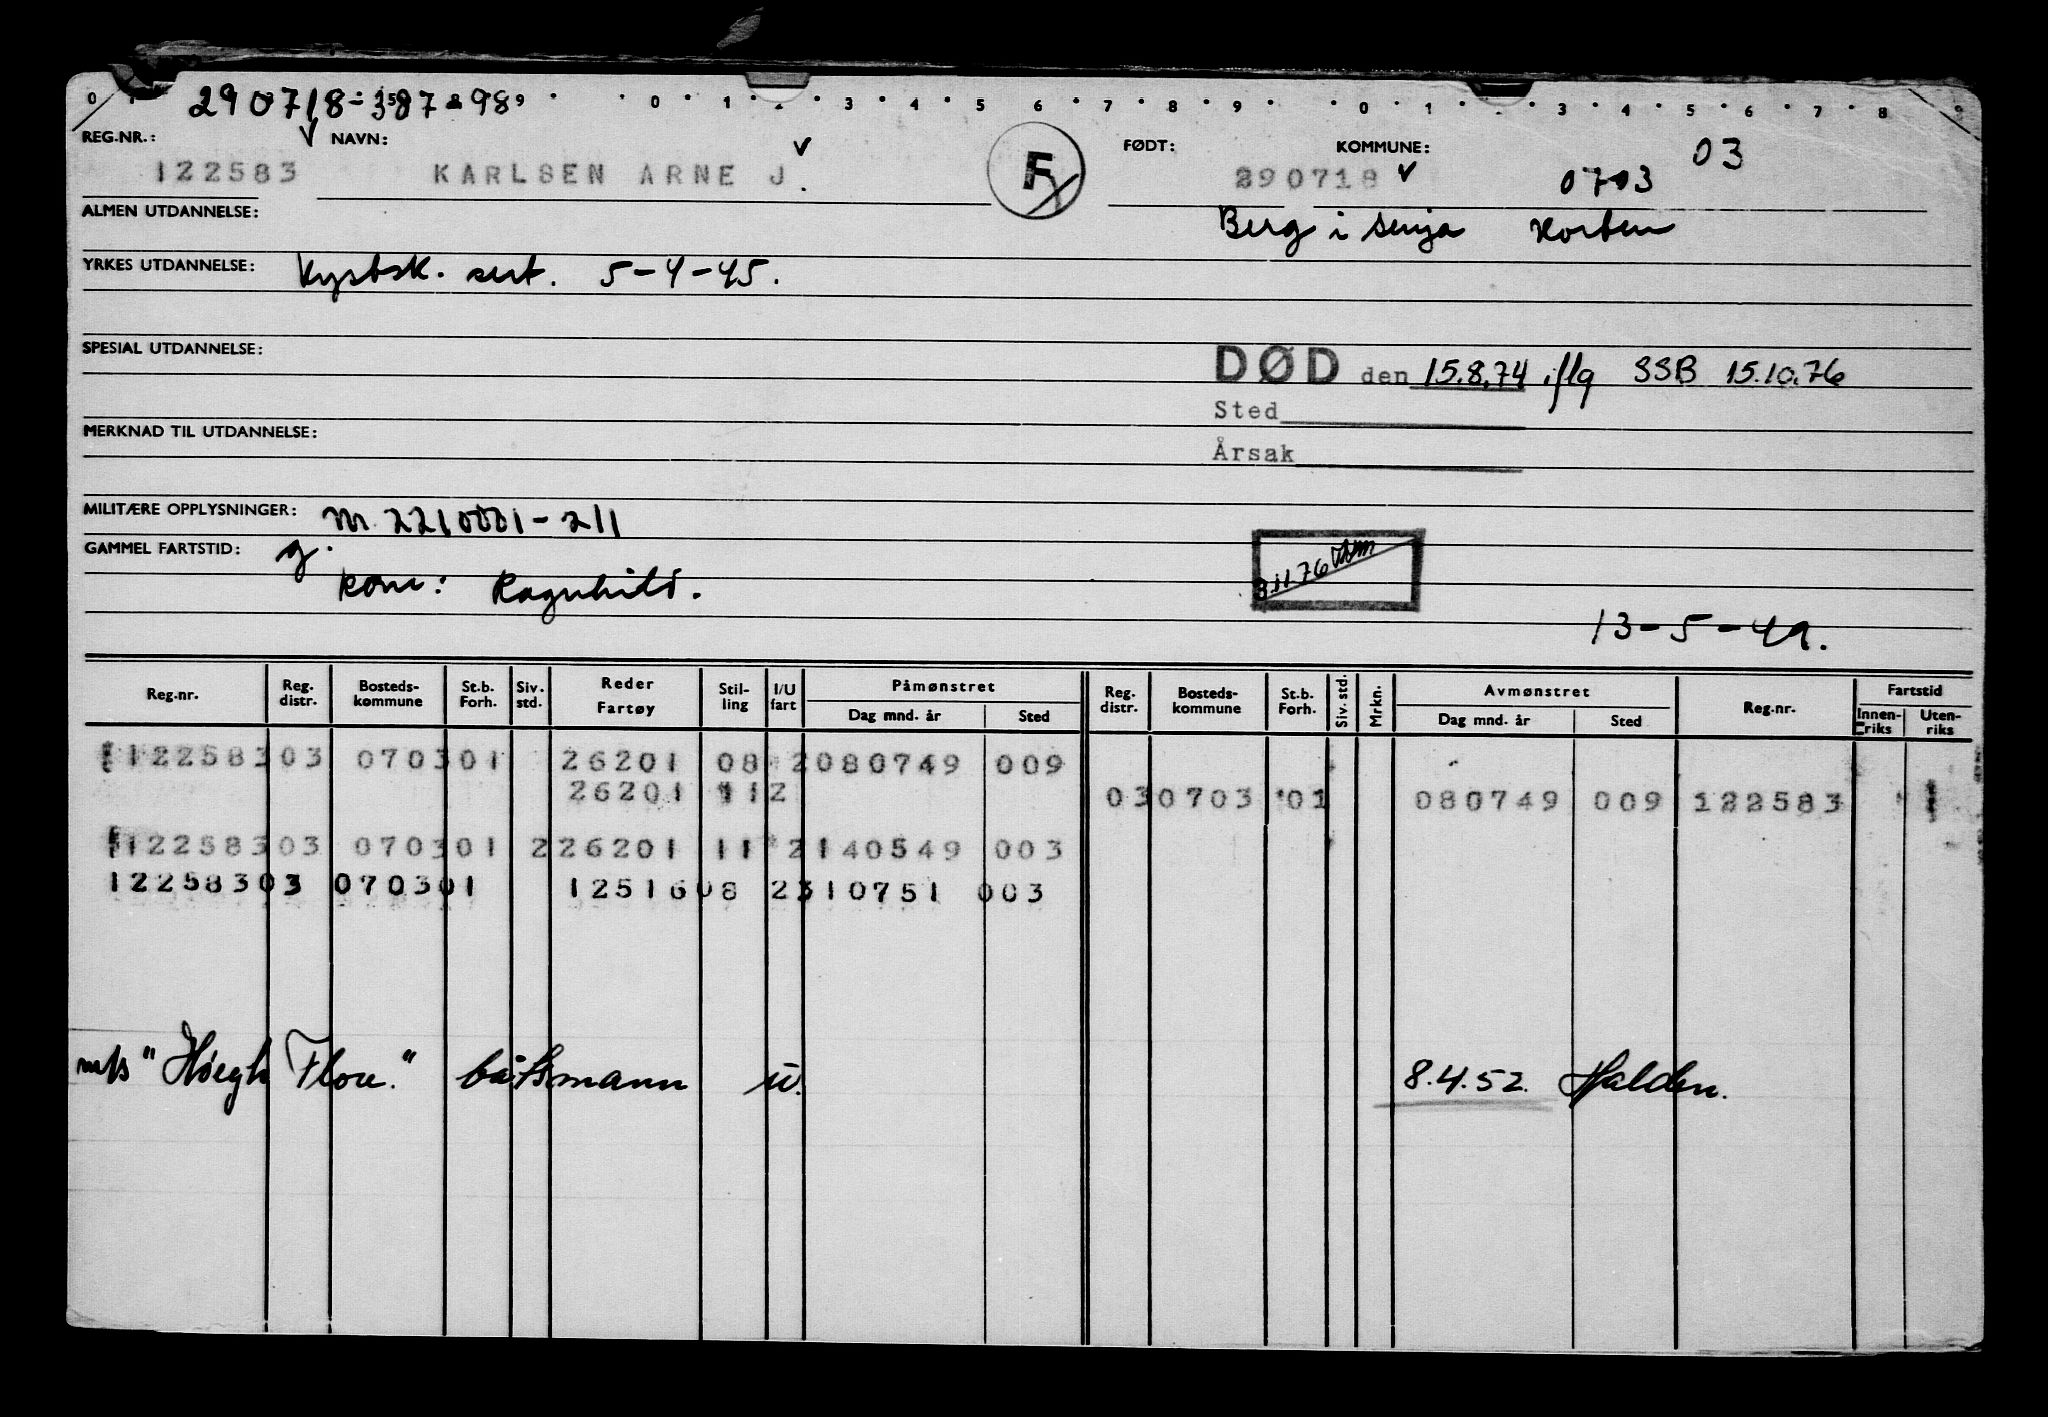 290718-38798
0 1 2 3 4 5 6 7 8 9 0 1 3 4 5 6 7 8 9
REG.NR.: NAVN: FØDT: KOMMUNE: 03
122583 KARLSEN ARNE J. F 290718 0703
ALMEN UTDANNELSE: Berg i Senja Horten
YRKES UTDANNELSE: Kystsk. sert. 5-4-45.
SPESIAL UTDANNELSE:
DØD den 15.8.74 iflg SSB 15.10.76
Sted
MERKNAD TIL UTDANNELSE:
Årsak
MILITÆRE OPPLYSNINGER: M. 2210001-211
GAMMEL FARTSTID: g.
kone: Ragnhild. 3.11.76
13-5-49.
Reg.nr. Reg. distr. Bosteds-kommune St.b. Forh. Siv. std. Reder Fartøy Stil-ling I/U fart Påmønstret Dag mnd. år Sted Reg. distr. Bosteds-kommune St.b. Forh. Siv. std. Mrkn. Avmønstret Dag mnd. år Sted Reg.nr. Fartstid Innen-riks Uten-riks
122583 03 0703 01 26201 08 2 080749 009
26201 11 2 03 0703 01 080749 009 122583
122583 03 0703 01 2 26201 11 2 140549 003
122583 03 0703 01 12516 08 2 310751 003
m/s "Høegh Flou." båtsmann u. 8.4.52. Halden.